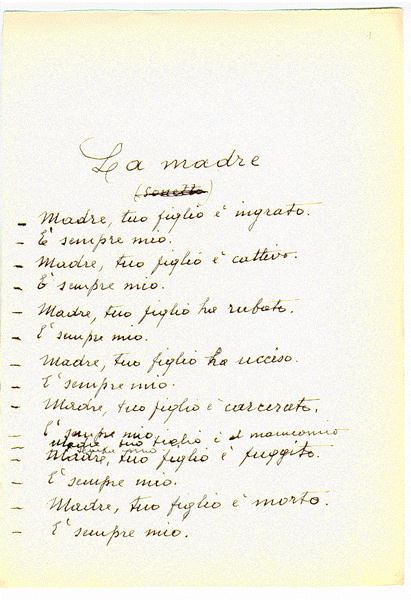 La madre
(sonetto)
- Madre, tuo figlio è ingrato.
- È sempre mio.
- Madre, tuo figlio è cattivo.
- È sempre mio.
- Madre, tuo figlio ha rubato.
- È sempre mio.
- Madre, tuo figlio ha ucciso.
- È sempre mio.
- Madre, tuo figlio è carcerato.
- È sempre mio.
- Madre, tuo figlio è al manicomio
- È sempre mio
- Madre, tuo figlio è fuggito.
- È sempre mio.
- Madre, tuo figlio è morto.
- È sempre mio.